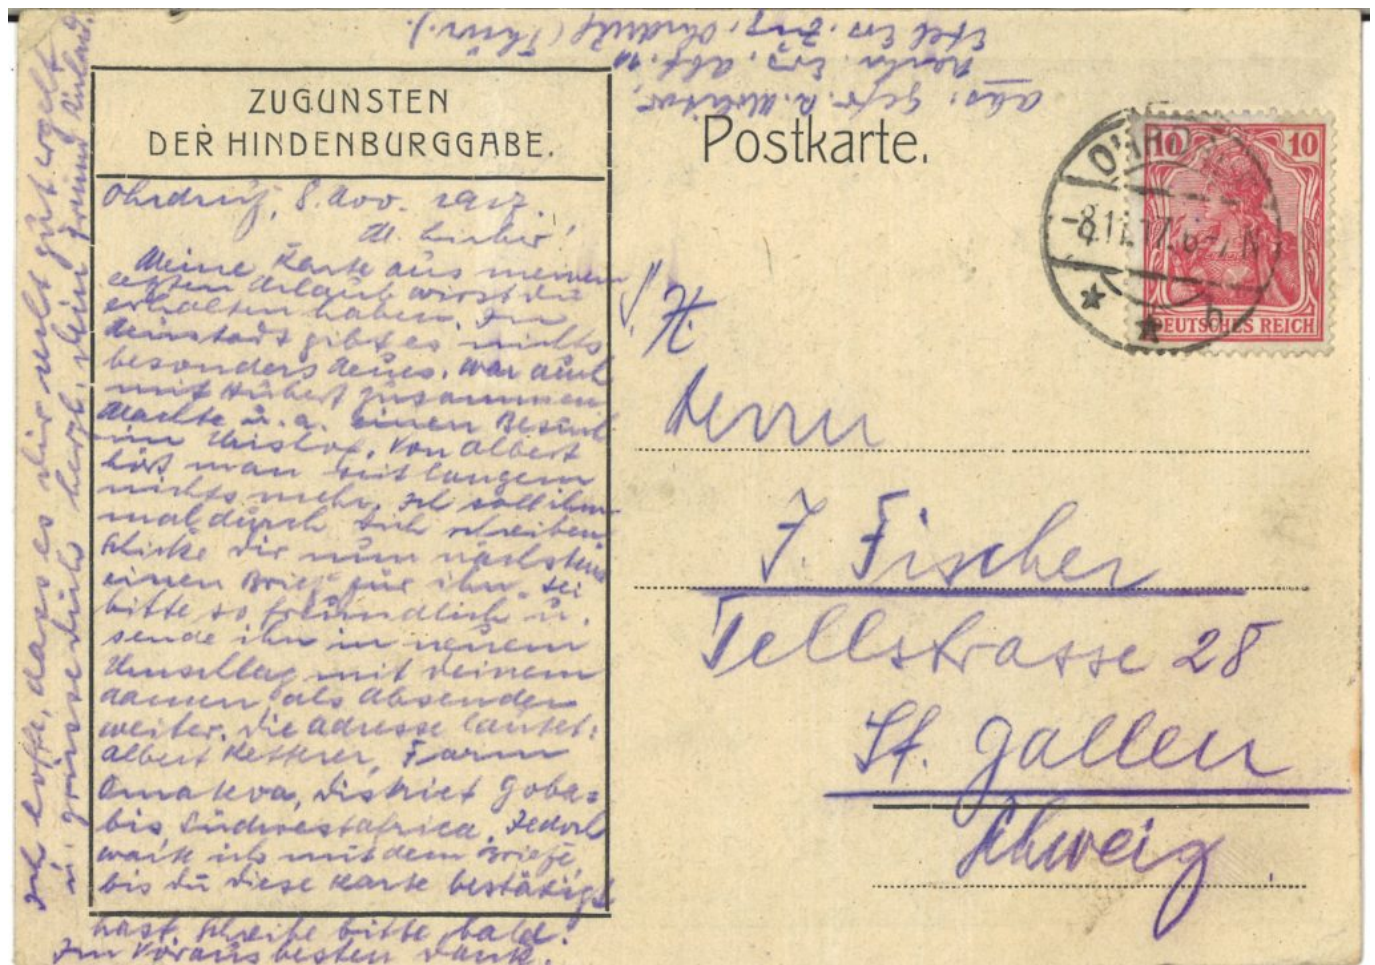 ZUGUNSTEN
DER HINDENBURGGABE.
Postkarte.
Ohrdruf, 8. Nov. 1917.
M. Lieber!
Meine Karte aus meinem
letzten Urlaub wirst du
erhalten haben. In
Neustadt gibt es nichts
besonders Neues. War auch
mit Hubert zusammen
Machte u. a. einen Besuch
im. Von Albert
hört man seit langem
nichts mehr. Ich soll ihm
mal durch dich schreiben
schicke dir nun nächstens
einen Brief für ihn. Sei
bitte so freundlich u.
sende ihn in neuem
Umschlag mit deinem
Namen als Absender
weiter. Die Adresse lautet:
Albert Ketterer, Farm
Omateva, District Goba=
bis Südwestafrica. Jedoch
warte ich mit dem Briefe,
bis du diese Karte bestätigt
hast. Schreibe bitte bald.
Im Voraus besten Dank.
Ich hoffe, dass es dir recht gut ergeht
u. grüsse dich herzl. dein Freund
Abs: Gefr. R.
Ers. Abt.
Ohrdruf (Thür.)
10 10
DEUTSCHES REICH
OHRDRUF
-8.11.17. 6-7 N
b
H.
Herrn
J. Fischer
Tellstrasse 28
St. Gallen
Schweiz